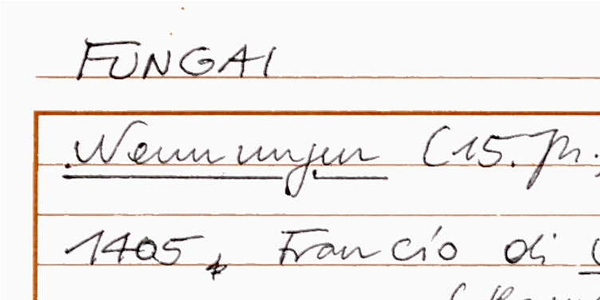 FUNGAI
Nennungen (15. Jh.
1405, Francio di